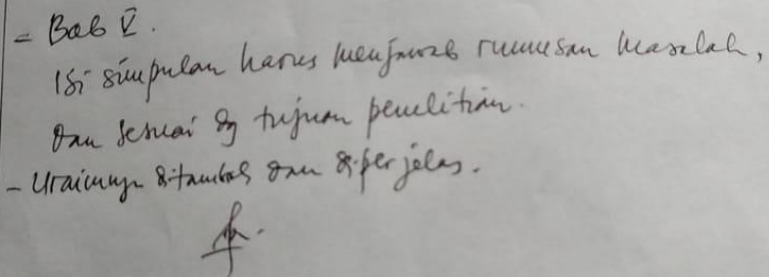 = Bab V.
Isi simpulan harus menjawab rumusan masalah,
dan sesuai dg tujuan penelitian.
- Urainnya ditambah dan diperjelas.